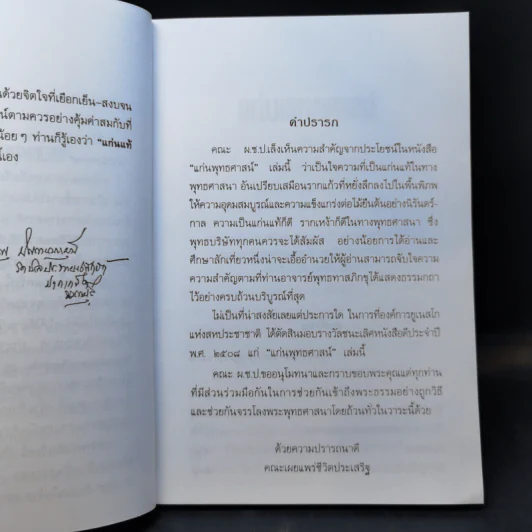 นด้วยจิตใจที่เยือกเย็น-สงบจน
น์ตามควรอย่างคุ้มค่าสมกับที่
น้อยๆ ท่านก็รู้เองว่า "แก่นแท้
นี้เอง
คำปรารภ
คณะ ผ.ช.ป.เล็งเห็นความสำคัญจากประโยชน์ในหนังสือ
"แก่นพุทธศาสน์" เล่มนี้ ว่าเป็นใจความที่เป็นแก่นแท้ในทาง
พุทธศาสนา อันเปรียบเสมือนรากแก้วที่หยั่งลึกลงไปในพื้นพิภพ
ให้ความอุดมสมบูรณ์และความแข็งแกร่งต่อไม้ยืนต้นอย่างนิรันดร์-
กาล ความเป็นแก่นแท้ก็ดี รากเหง้าก็ดีในทางพุทธศาสนา ซึ่ง
พุทธบริษัททุกคนควรจะได้สัมผัส อย่างน้อยการได้อ่านและ
ศึกษาสักเที่ยวหนึ่งน่าจะเอื้ออำนวยให้ผู้อ่านสามารถจับใจความ
ความสำคัญตามที่ท่านอาจารย์พุทธทาสภิกขุได้แสดงธรรมกถา
ไว้อย่างครบถ้วนบริบูรณ์ที่สุด
ไม่เป็นที่น่าสงสัยเลยแต่ประการใด ในการที่องค์การยูเนสโก
แห่งสหประชาชาติ ได้ตัดสินมอบรางวัลชนะเลิศหนังสือดีประจำปี
พ.ศ. ๒๕๐๘ แก่ "แก่นพุทธศาสน์" เล่มนี้
คณะ ผ.ช.ป.ขออนุโมทนาและกราบขอบพระคุณแด่ทุกท่าน
ที่มีส่วนร่วมมือกันในการช่วยกันเข้าถึงพระธรรมอย่างถูกวิธี
และช่วยกันจรรโลงพระพุทธศาสนาโดยถ้วนทั่วในวาระนี้ด้วย
ด้วยความปรารถนาดี
คณะเผยแพร่ชีวิตประเสริฐ